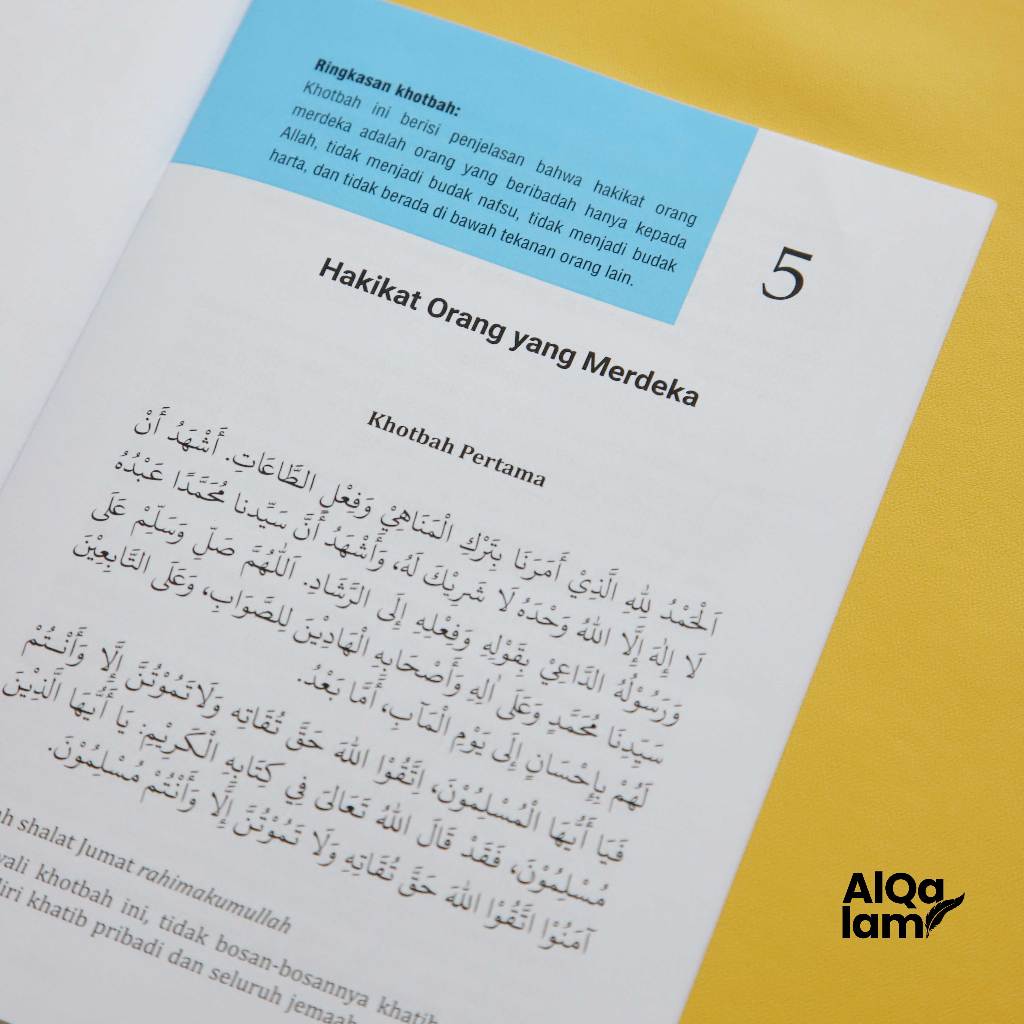 Ringkasan khotbah:
Khotbah ini berisi penjelasan bahwa hakikat orang
merdeka adalah orang yang beribadah hanya kepada
Allah, tidak menjadi budak nafsu, tidak menjadi budak
harta, dan tidak berada di bawah tekanan orang lain.
5
Hakikat Orang yang Merdeka
Khotbah Pertama
اَلْحَمْدُ لِلّٰهِ الَّذِيْ أَمَرَنَا بِتَرْكِ الْمَنَاهِيْ وَفِعْلِ الطَّاعَاتِ. أَشْهَدُ أَنْ
لَا إِلٰهَ إِلَّا اللهُ وَحْدَهُ لَا شَرِيْكَ لَهُ، وَأَشْهَدُ أَنَّ سَيِّدنا مُحَمَّدًا عَبْدُهُ
وَرَسُوْلُهُ الدَّاعِيْ بِقَوْلِهِ وَفِعْلِهِ إِلَى الرَّشَادِ. اَللّٰهُمَّ صَلِّ وَسَلِّمْ عَلَى
سَيِّدِنَا مُحَمَّدٍ وَعَلَى اٰلِهِ وَأَصْحَابِهِ الْهَادِيْنَ لِلصَّوَابِ، وَعَلَى التَّابِعِيْنَ
لَهُمْ بِإِحْسَانٍ إِلَى يَوْمِ الْمَآبِ، أَمَّا بَعْدُ.
فَيَا أَيُّهَا الْمُسْلِمُوْنَ، اِتَّقُوْا اللهَ حَقَّ تُقَاتِه وَلَا تَمُوْتُنَّ إِلَّا وَأَنْـتُمْ
مُسْلِمُوْنَ، فَقَدْ قَالَ اللهُ تَعَالَى فِي كِتَابِهِ الْكَرِيْمِ: يَا أَيُّهَا الَّذِيْنَ
آمَنُوْا اتَّقُوْا اللهَ حَقَّ تُقَاتِهِ وَلَا تَمُوْتُنَّ إِلَّا وَأَنْتُمْ مُسْلِمُوْنَ.
shalat Jumat rahimakumullah
khotbah ini, tidak bosan-bosannya
khatib pribadi dan seluruh
AlQa
lam